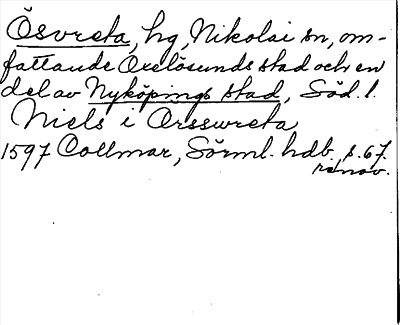 Ösvreta, hg, Nikolai sn, om-
fattande Oxelösunds stad och en
del av Nyköpings stad, Söd. l.
Niels i Ørsswreta
1597 Collmar, Sörml. hdb. s. 67.
renov.